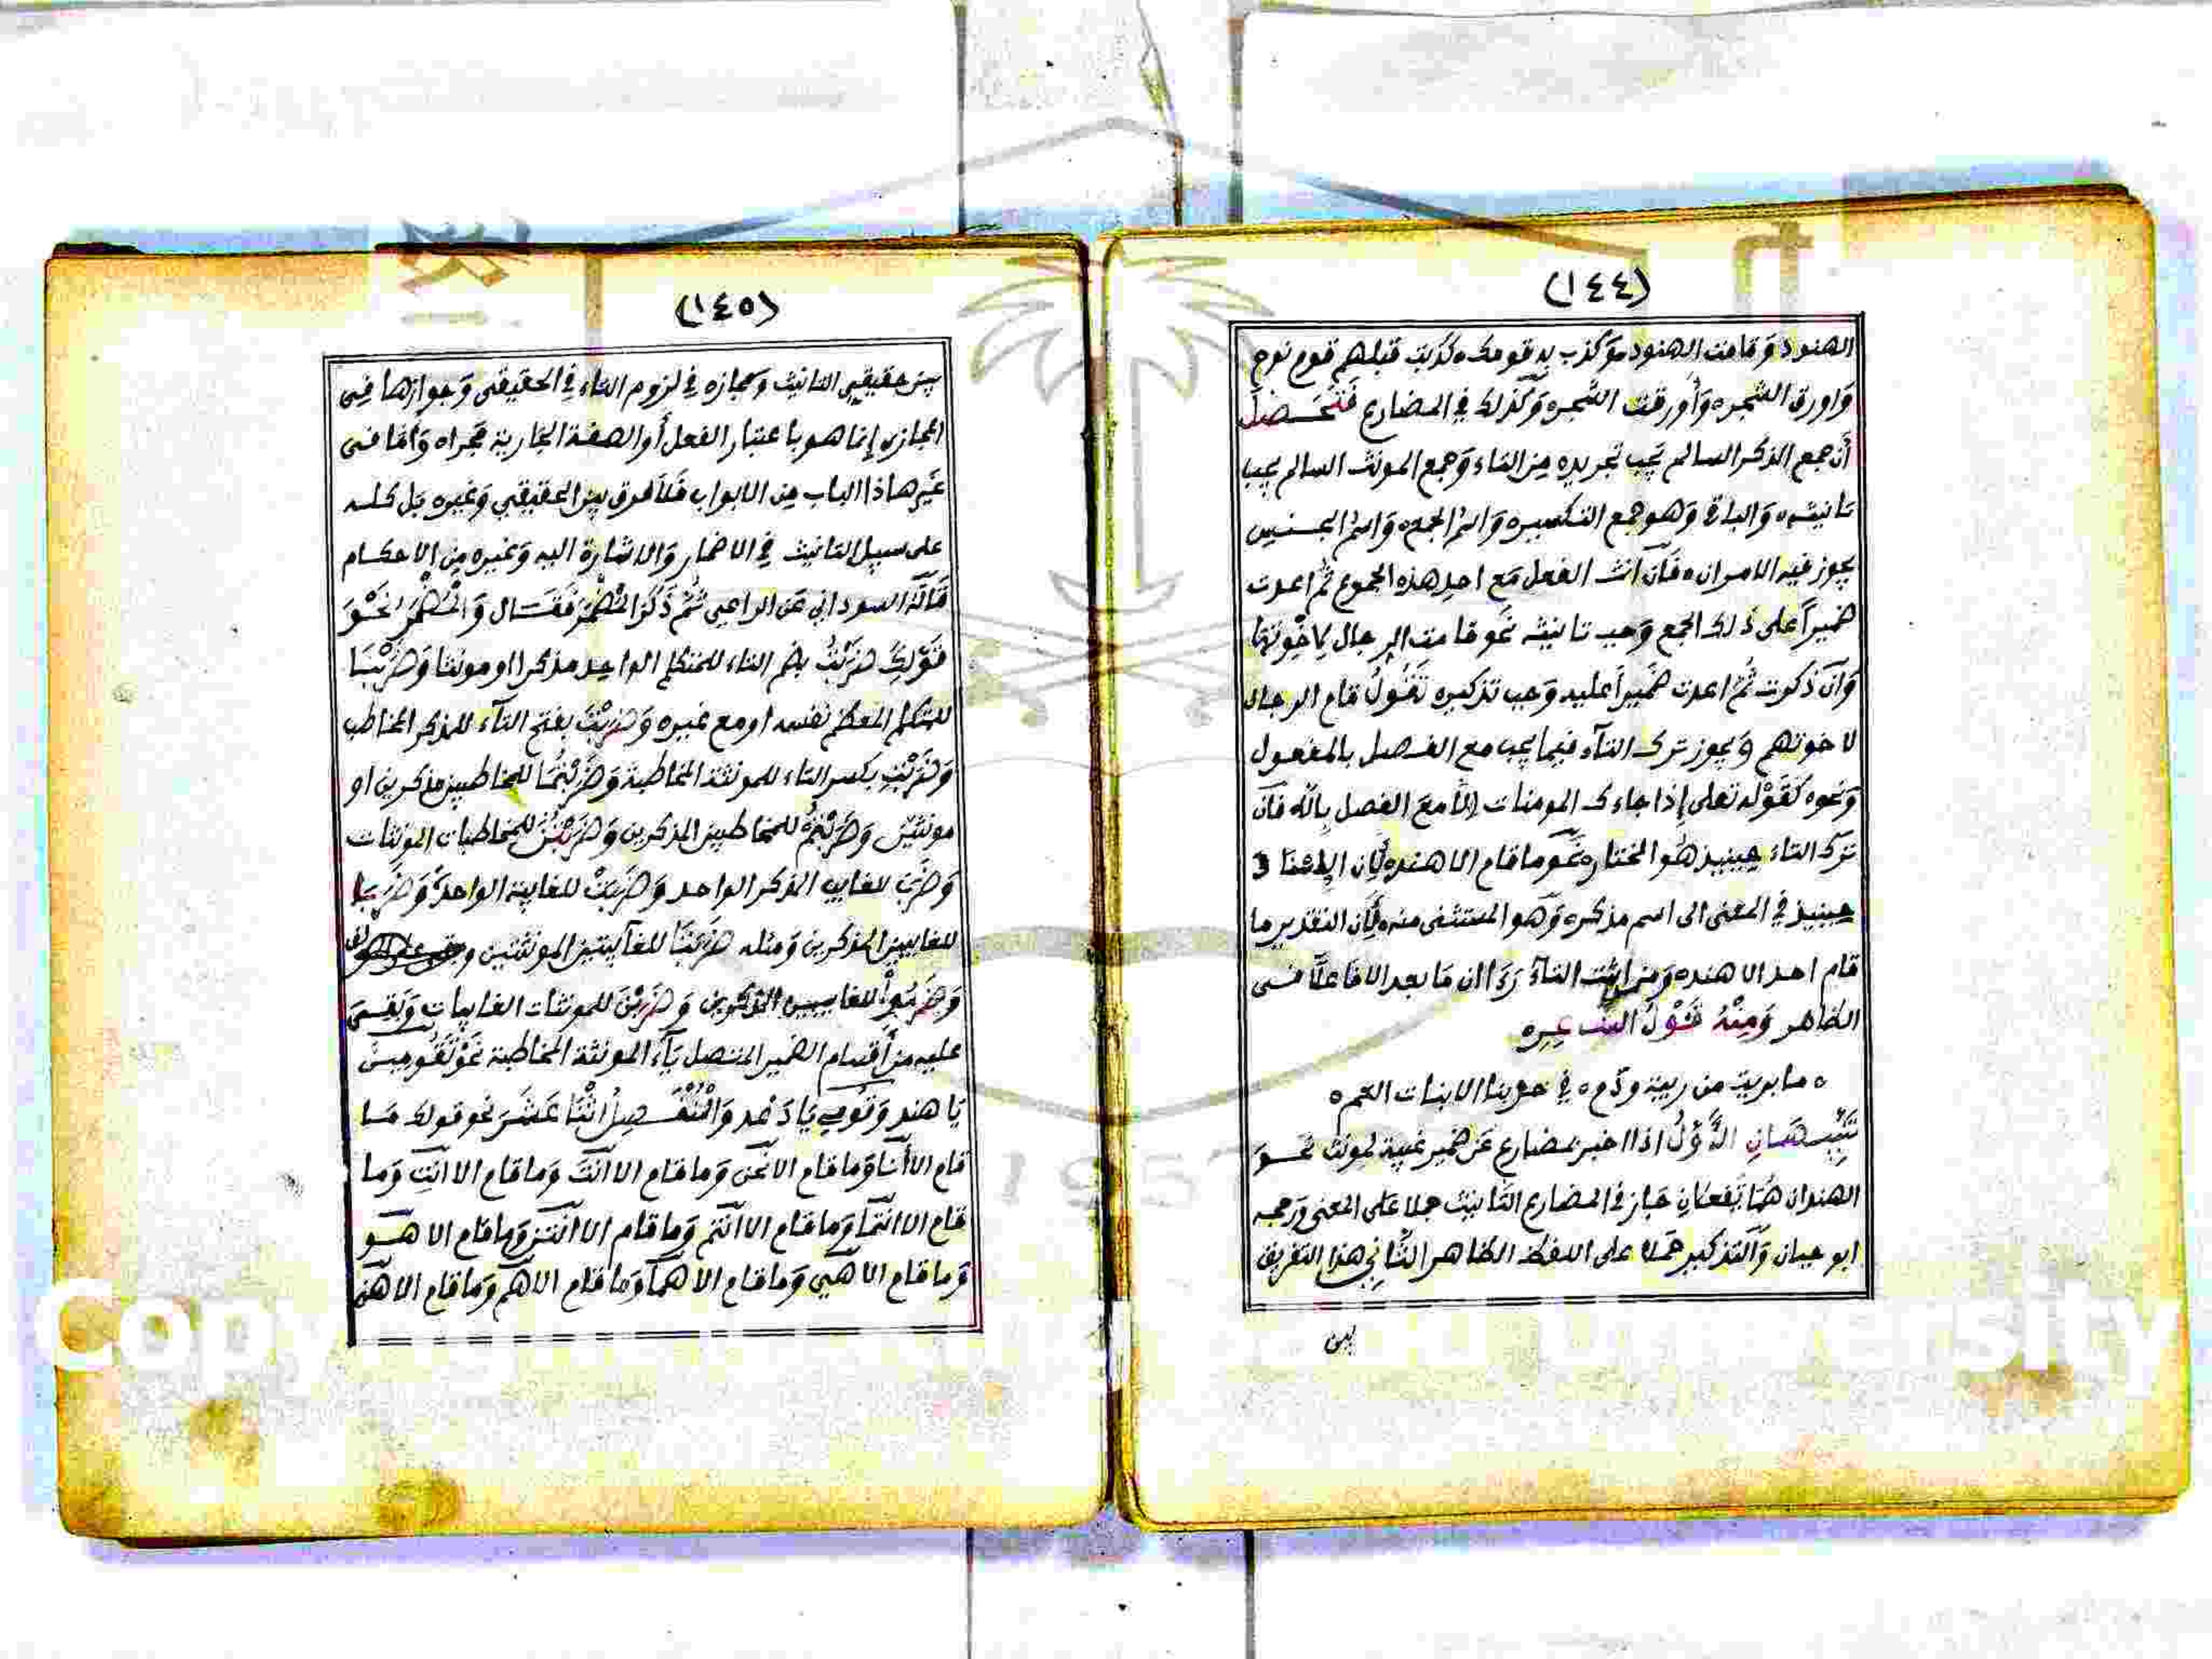 (١٤٤)
الهنود وَقامت الهنود وَكذب به قومك كذبت قبلهم قوم نوح
وَاورق الشجر وَأورقت الشجر وَكذلك في المضارع فَتَحَصَّل
أن جمع المذكر السالم يجب تجريده مِن التاء وَجمع المونث السالم يجب
تانيثه وَالباقي وَهو جمع التكسير وَاسم الجمع وَاسم الجنس
يجوز فيه الامران فَان انث الفعل مَع احد هذه الجموع ثم اعدت
ضميراً على ذلك الجمع وَجب تانيثه نحو قامت الرجال لاخوتها
وَان ذكرت ثُمَّ اعدت ضميراً عليه وَجب تذكيره تَقُولُ قام الرجال
لاخوتهم وَيجوز ترك التاء فيما يجب مع الفصل بالمفعول
وَنحوه كَقَوْله تعلى إذا جاءك المومنات إلا مَعَ الفصل بإلا فان
ترك التاء حينيذ هُو المختار نحو ما قام الا هند لِأن الاسناد
حينيذ في المعنى الى اسم مذكر وَهو المستثنى منه لِأن التقدير ما
قام احد الا هند وَمن اثبت التاء رَءَا ان مَا بعد الا فاعلا فى
الظاهر وَمِنْهُ قَوْلُ الشاعر
ما بريت من ريبة وذم في حربنا الا بنات العم
تَنْبِيهَانِ الأَوَّلُ اذا اخبر بمضارع عَن ضمير غيبة لمونث نحو
الهندان هُمَا تَفعلانِ جَاز في المضارع التانيث حملا عَلى المعنى وَرجحه
ابو حيان وَالتذكير حملا على اللفظ الظاهر الثَّاني هذا التفريق
بين
(١٤٥)
بين حقيقي التانيث وَمجازه في لزوم التاء في الحقيقي وَجوازها فِى
المجازي إنما هو باعتبار الفعل أو الصفة الجارية مجراه وَأمّا فى
غير هاذا الباب مِن الابواب فَلا فرق بين الحقيقي وَغيره بَل كله
على سبيل التانيث في الاضمار وَالاشارة اليه وَغيره مِن الاحكام
قَالَهُ السوداني عَن الراعي ثُمَّ ذَكَرَ المُضْمَر فَقَال وَالْمُضْمَرُ نَحْوَ
قَوْلِكَ ضَرَبْتُ بضم التاء للمتكلم الواحد مذكرا او مونثا وَضَرَبْنَا
للمتكلم المعظم نفسه او مع غيره وَضَرَبْتَ بفتح التاء للمذكر المخاطب
وَضَرَبْتِ بكسر التاء للمونثة المخاطبة وَضَرَبْتُمَا للمخاطبين مذكرين او
مونثين وَضَرَبْتُمْ للمخاطبين المذكرين وَضَرَبْتُنَّ للمخاطبات المونثات
وَضَرَبَ للغايب المذكر الواحد وَضَرَبَتْ للغايبة الواحدة وَضَرَبَا
للغايبين المذكرين وَمثله ضَرَبَتَا للغايبتين المونثتين
وَضَرَبُواْ للغايبين المذكرين وَضَرَبْنَ للمونثات الغايبات وَبَقِىَ
عليه من أقسام الضمير المتصل يَاء المونثة المخاطبة نَحْوَ تَقُومِينَ
يَا هند وَقُومِي يَا دَعْد وَالْمُنْفَصِلُ اثْنَا عَشَرَ نحو قولك مَا
قام الا أَنَا وَما قام الا نَحْنُ وَما قام الا انْتَ وَما قام الا انتِ وَما
قام الا انْتُمَا وَما قام الا انْتُمْ وَما قام الا انْتُنَّ وَما قام الا هُو
وَما قام الا هِي وَما قام الا هُما وَما قام الا هُمْ وَما قام الا هُنَّ
1957
Copy
University